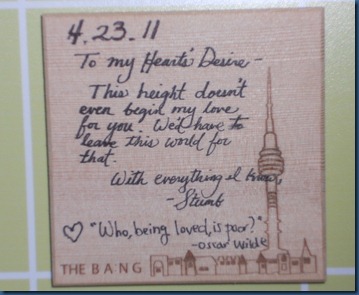 4.23.11
To my Hearts' Desire-
This height doesn't
even begin my love
for you. We'd have to
leave this world for
that.
With everything I know,
"Who, being loved, is poor?"
-oscar Wilde
THE BANG